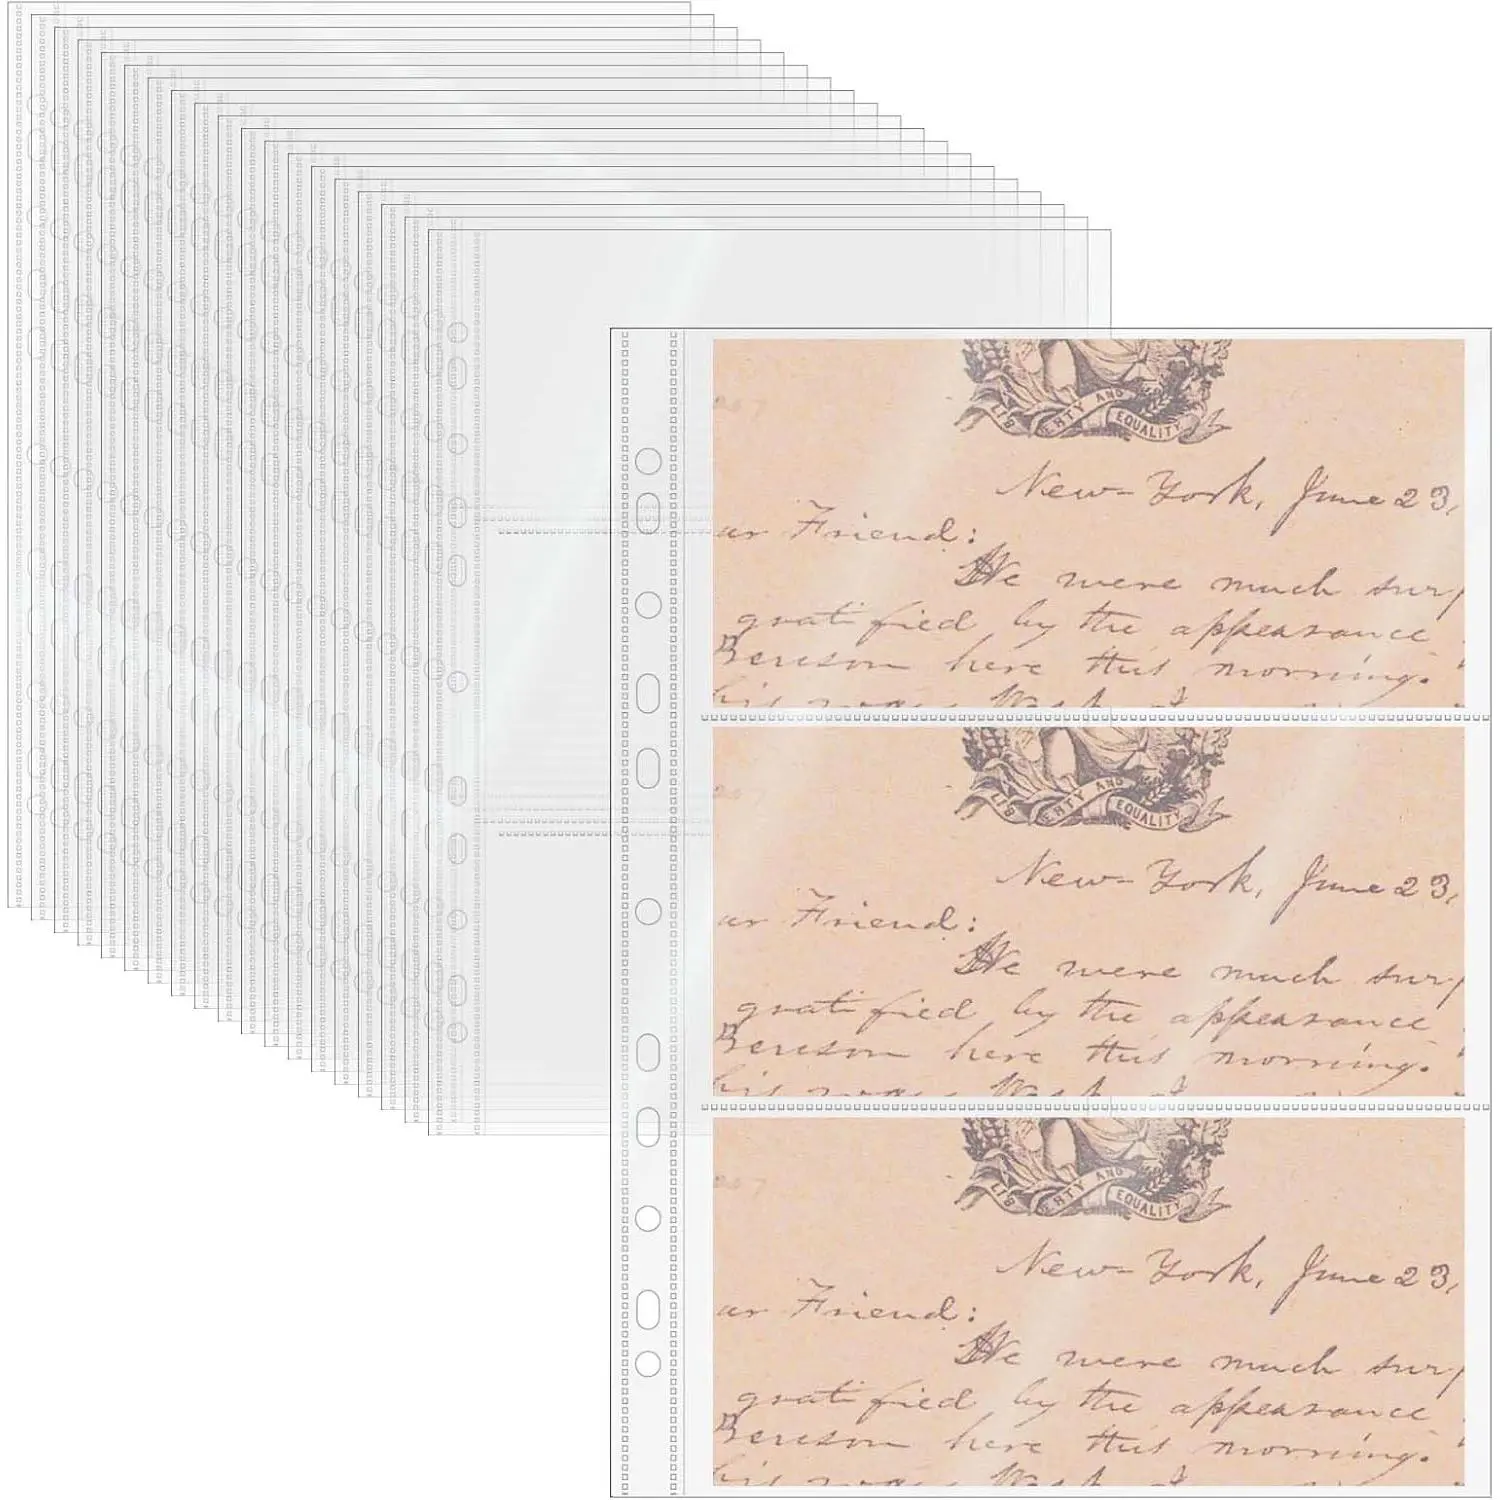 LIBERTY AND EQUALITY
New-York, June 23,
ur Friend:
We were much sur
gratified by the appearance
Benison here this morning.
his was
LIBERTY AND EQUALITY
New-York, June 23,
ur Friend:
We were much sur
gratified by the appearance
here this morning.
his was
LIBERTY AND EQUALITY
267
New-York, June 23,
ur Friend:
We were much sur
gratified by the appearance
here this morning.
his was